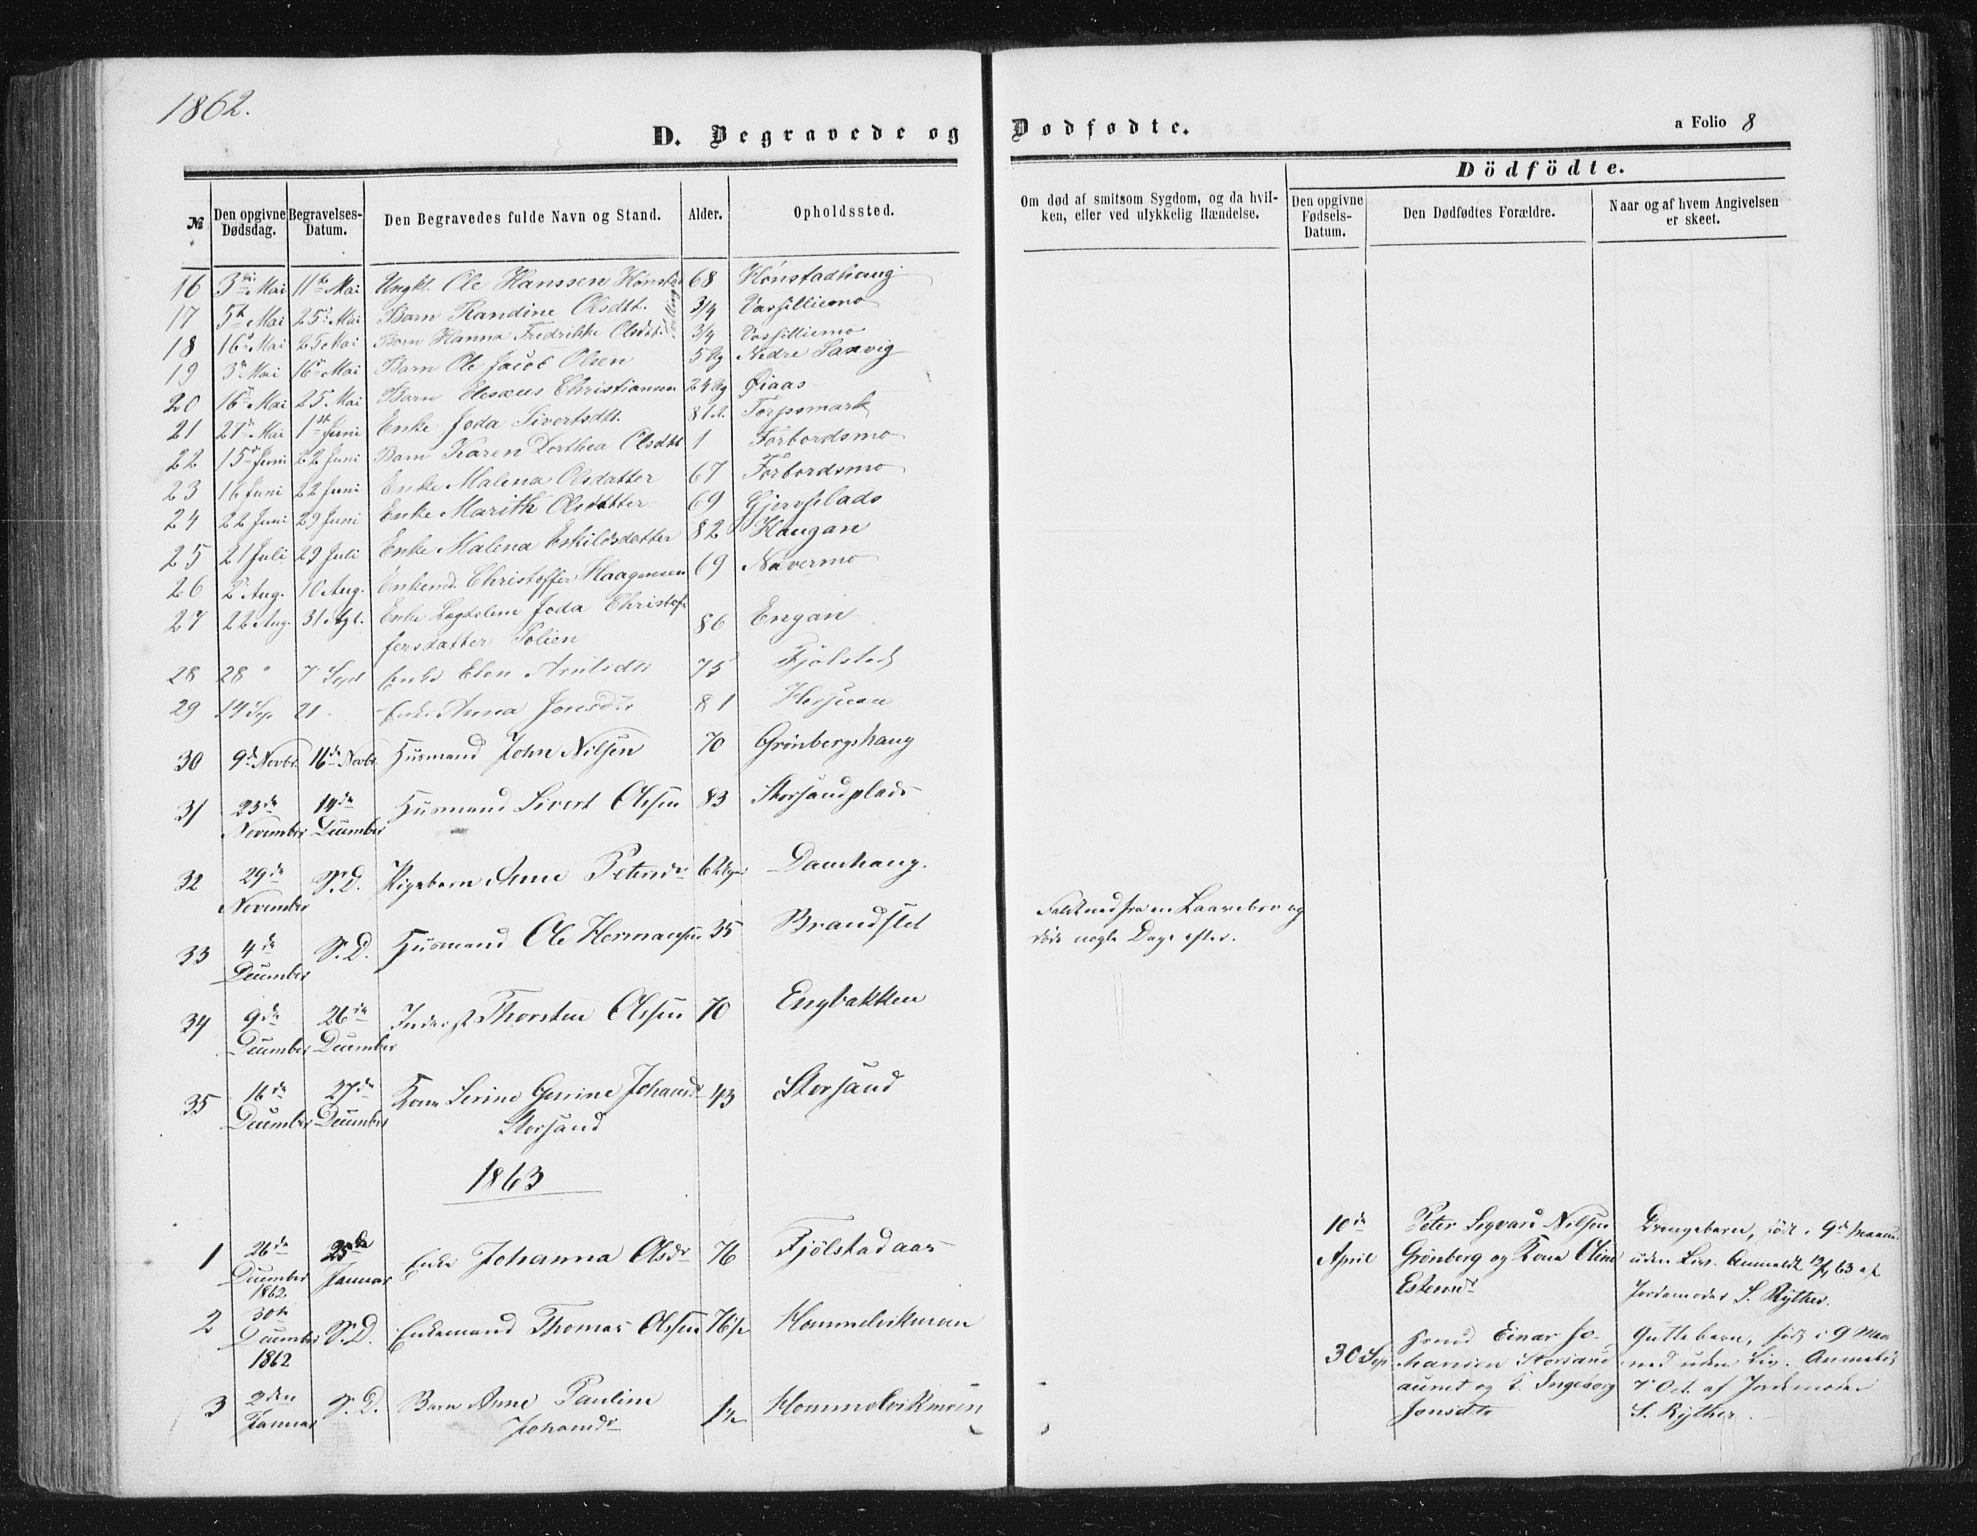 1862.
D. Begravede og Dødfødte.
a Folio 8
№ Den opgivne Dødsdag. Begravelses-Datum. Den Begravedes fulde Navn og Stand. Alder. Opholdssted.
Om død af smitsom Sygdom, og da hvilken, eller ved ulykkelig Hændelse.
Dödfödte.
Den opgivne Fødsels-Datum. Den Dødfødtes Forældre. Naar og af hvem Angivelsen er skeet.
16 3die Mai 11te Mai Ungk. Ole Hanssen 68 Hønstadhaug
17 5te Mai 25 Mai Barn Randine Olsdtt. 3/4 Vasfilliemo
18 16 Mai 25 Mai Barn Hanna Fredrikke Olsdtt. 3/4 Vasfilliemo
19 3 Mai 16 Mai Barn Ole Jacob Olsen 5 Nedre Saxvig
20 16 Mai 25 Mai Barn Christiansen 24 Øiaas
21 27 Mai 1ste Juni Enke Joda Sivertsdtt. 81 Torpsmark
22 15de Juni 22 Juni Barn Karen Dorthea Olsdtt 1 Forbordsmo
23 16 Juni 22 Juni Enke Malena Olsdatter 67 Forbordsmo
24 22 Juni 29 Juni Enke Marith Olsdatter 69
25 21 Juli 29 Juli Enke Malena Eskildsdatter 82 Haugan
26 2 Aug. 10 Aug. Enkemd. Christoffer Haagensen 69 Navermo
27 22 Aug. 31 Agt. Enke Joda Christof-
fersdatter Polien 86 Engan
28 28 " 7 Sept Enke Elen 75 Fjølstad
29 14 Sep. 21 Enke Anna Jonsdtr 81
30 9de Novbr. 16de Novbr. Husmand John Nilsen 70 Grønbergshaug
31 23de November 14de December Husmand Sivert Olsen 83 Storsandplads
32 29de November S. D. Pigebarn Anne Petersdr 6 Damhaug.
33 4de December S. D. Husmand Ole Hermansen 35 Brandslet
Faldt ned fra en Laavebro og
døde nogle Dage efter.
34 9de December 26de December Inderst Thorsten Olsen 70 Engbakken
35 16de December 27de December Kone Serine Gurine Johansdr 43 Storsand
Storsand
1863
1 26de December 1862 25de Januar Enke Johanna Olsdr 76 Fjølstadaas
2 30te December 1862 S. D. Enkemand Thomas Olsen 76 1/2 Hommelvikmoen
3 2den Januar S. D. Barn Anne Pauline 1 1/2 Hommelvikmoen
Johansdr
10de Peter Sigvard Nilsen Drengebarn, født i 9de Maaned
April Grønberg og Kone Oline uden Liv. Anmeldt 12/4 63 af
Estensdr Jordemoder S. Rÿther.
Einar Jo- Guttebarn, født i 9 Maa-
30 Sep. hansen Storsand ned uden Liv. Anmeldt
aunet og k. Ingeborg 7 Oct. af Jordemoder
Jonsdtr S. Rÿther.